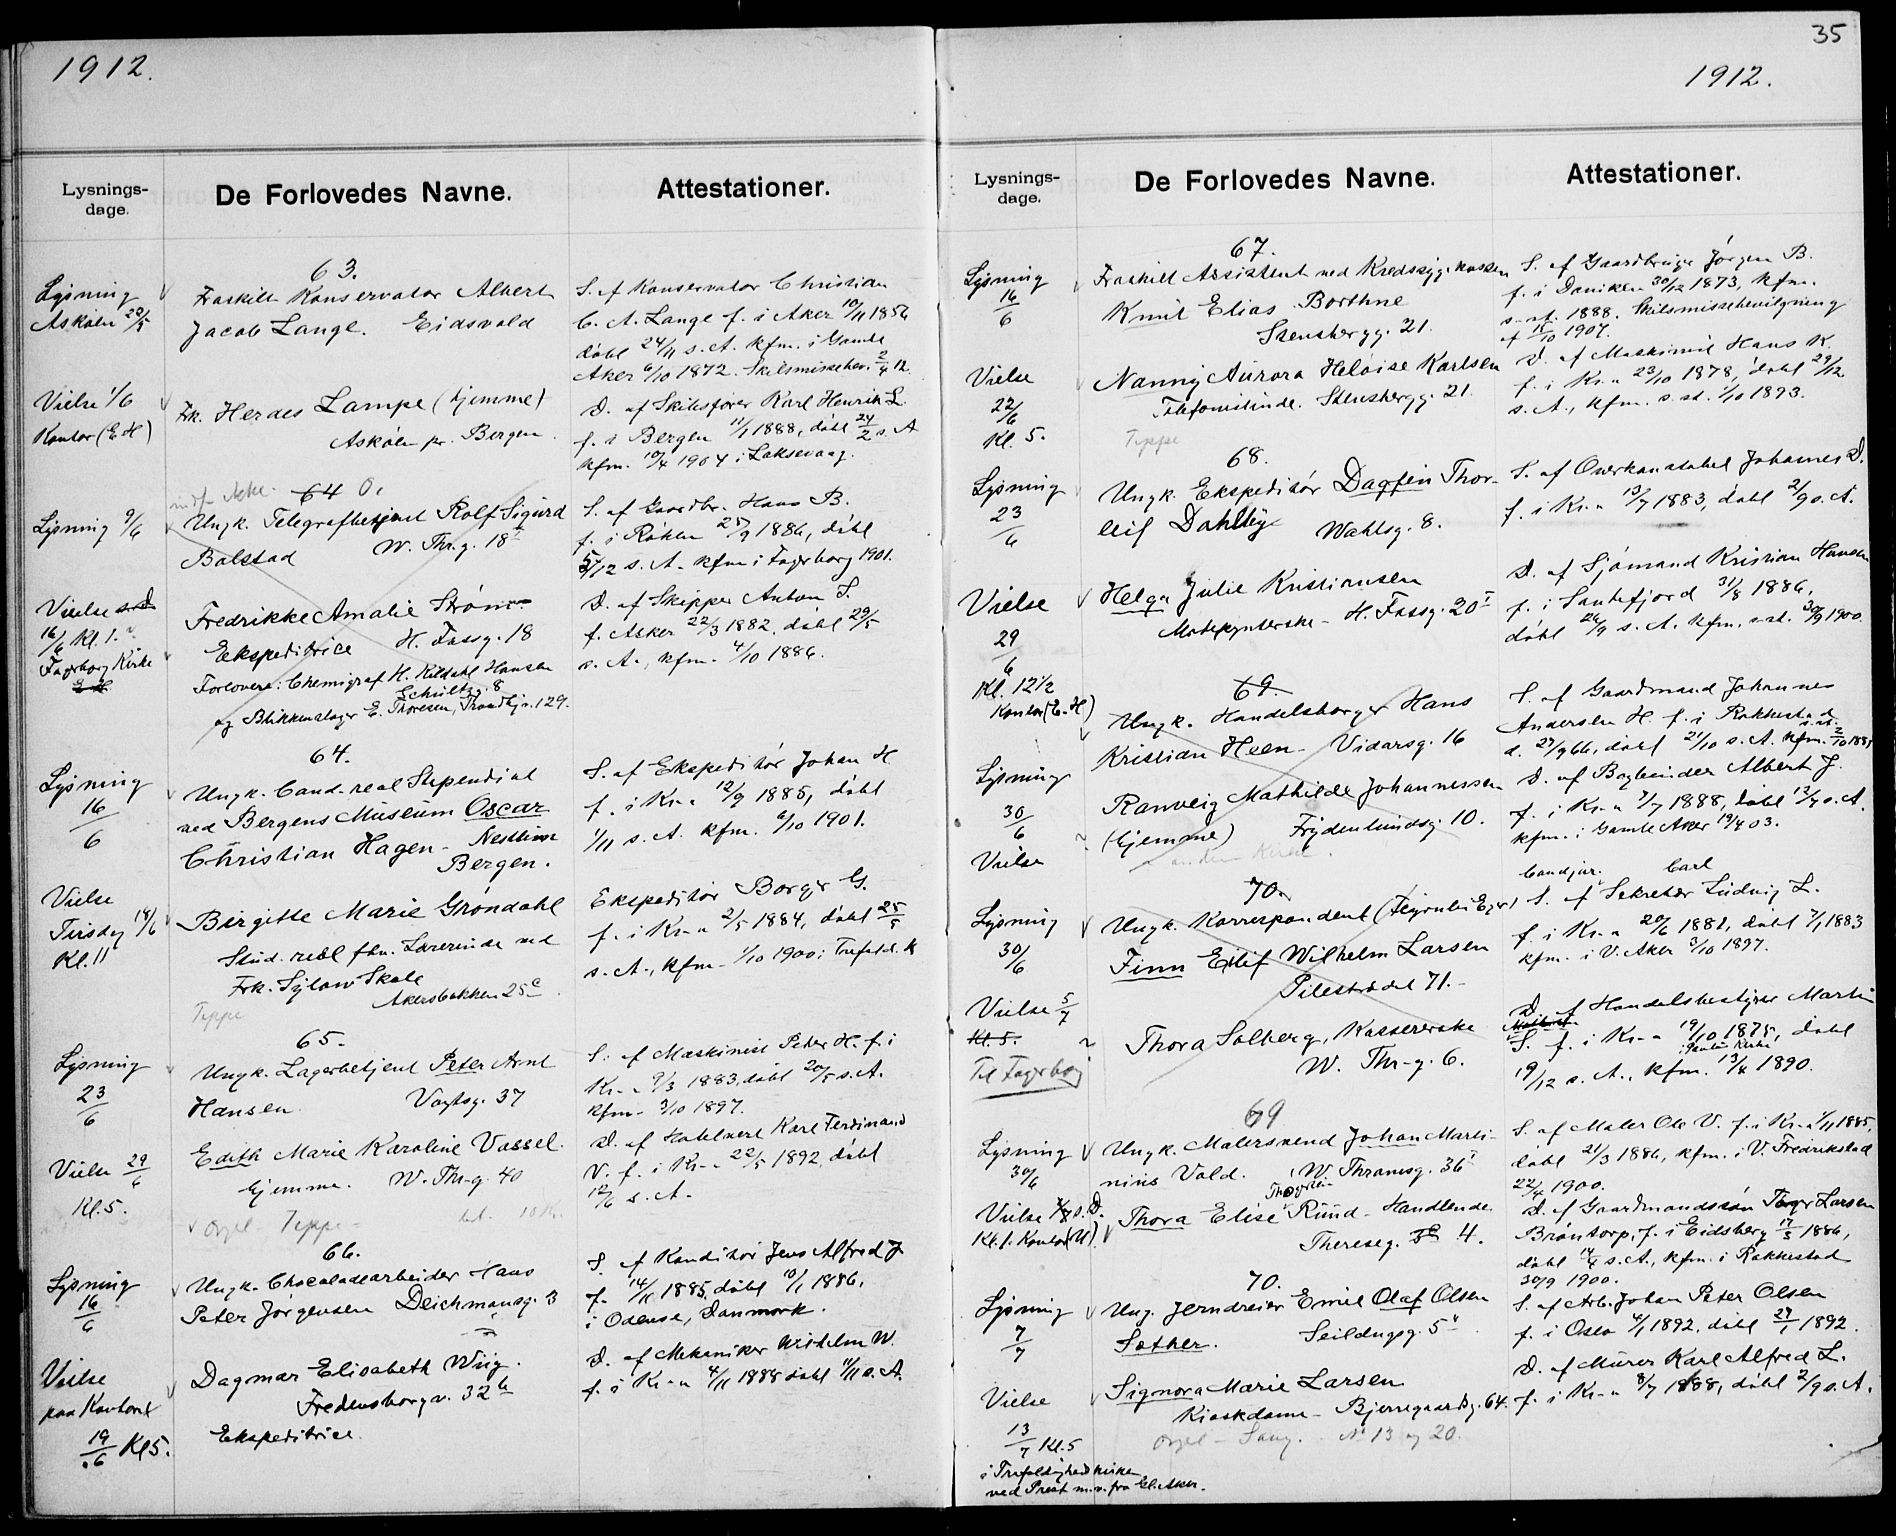 1912.
Lysnings-
dage.
De Forlovedes Navne.
Attestationer.
63.
Lysning
Askøen 20/5
Fraskilt Konservator Albert
Jacob Lange. Eidsvold
S. af Konservator Christian
C. A. Lange f. i Aker 10/11 1856
døbt 24/11 s. A. kfm. i Gamle
Aker 6/10 1872. Skilsmissebev. 2/4 12.
Vielse 1/6
Kontor (E. H)
Frk. Herdes Lampe (hjemme)
Askøen pr. Bergen.
D. af Skibsfører Karl Henrik L.
f. i Bergen 11/1 1888, døbt 24/2 s. A
kfm. 10/4 1904 i Laksevaag.
64 0.
Lysning 9/6
Ungk. Telegrafbetjent Rolf Sigurd
Bolstad W. Thr. g. 18
S. af Gaardbr. Hans B.
f. i Røken 25/9 1886, døbt
5/12 s. A. kfm i Fagerborg 1901.
Vielse s. D.
16/6 Kl. 1.
Fagerborg Kirke
E H.
Fredrikke Amalie Strøm
Ekspeditrice H. Fossg. 18
Forlovere: Chemigraf H. Kildahl Hansen
Schultzg. 8
og Blikkenslager E. Thoresen, Trondhjv. 129.
D. af Skipper Anton S.
f. Asker 22/3 1882. døbt 29/5
s. A., kfm. 4/10 1886.
64.
Lysning
16/6
Ungk. Cand. real Stipendiat
ved Bergens Museum Oscar
Christian Hagen - Nestun
Bergen.
S. af Ekspeditør Johan H
f. i Kr.a 12/9 1885, døbt
1/11 s. A. kfm. 6/10 1901.
Vielse
Tirsdag 18/6
Kl. 11
Birgitte Marie Grøndahl
Stud. real fhv. Lærerinde ved
Frk. Sylow Skole
Akersbakken 25 c
Teppe
Ekspeditør Borger G.
f. i Kr.a 2/5 1884, døbt 25/5
s. A., kfm. 1/10 1900 i Trefold. K
65.
Lysning
23/6
Ungk. Lagerbetjent Peter Arnt
Hansen. Vogtsg. 37
S. af Maskinist Peter H. f. i
Kr.a 9/3 1883, døbt 20/5 s. A.
kfm. 3/10 1897.
Vielse 29/6
Kl. 5.
Edith Marie Karoline Vassel.
Hjemme. W. Thr. g. 40
Orgel - Teppe -
D. af Karl Ferdinand
V. f. i Kr.a 22/5 1892, døbt
12/6 s. A.
66.
Lysning
16/6
Ungk. Chocoladearbeider Hans
Peter Jørgensen Deichmansg. 3
S. af Konditor Jens Alfred J.
f. 14/11 1885, døbt 10/1 1886,
i Odense, Danmark.
Vielse
paa Kontoret
19/6 Kl 5.
Dagmar Elisabeth Wiig.
Fredensborgv. 32 b
Ekspeditrice.
D. af Mekaniker Wilhelm W.
f. i Kr.a 4/11 1888 døbt 11/11 s. A.
35
1912.
Lysnings-
dage.
De Forlovedes Navne.
Attestationer.
67.
Lysning
16/6
Fraskilt Assistent ved Kredssyg. kassen
Knut Elias Borthne
Stensbergg. 21.
S. af Gaardbruger Jørgen B.
f. i Daviken 30/12 1873, kfm.
s. st. 1888. Skilsmissebevilgning
af 15/10 1907.
Vielse
22/6
Kl. 5.
Nanny Aurora Heloise Karlsen
Telefonistinde. Stensbergg. 21.
Teppe
D. af Maskinist Hans K.
f. i Kr.a 23/10 1878, døbt 29/12
s. A., kfm. s. st. 1/10 1893.
68.
Lysning
23/6
Ungk. Ekspeditør Dagfin Thor-
leif Dahlby Wahlsg. 8.
S. af Overkonstabel Johannes D.
f. i Kr.a 13/7 1883, døbt 2/9 s. A.
Vielse
29/6
Kl. 12 1/2
Kontor (E. H)
Helga Julie Kristiansen
Modepynterske - H. Fossg. 20
D. af Sjømand Kristian Hansen
f. i Sandefjord 31/8 1886,
døbt 26/9 s. A. kfm. s. st. 30/9 1900.
69.
Lysning
30/6
Ungk. Handelsborger Hans
Kristian Heen - Vidarsg. 16
S. af Gaardmand Johannes
Andersen H. f. i Rakkestad
d. 27/9 66, døbt 21/10 s. A. kfm. s. st. 2/10 1881
Vielse
Ranveig Mathilde Johannessen
(Hjemme) Frydenlundsg. 10.
anden Kirke.
D. af Bogbinder Albert J.
f. i Kr.a 7/7 1888, døbt 13/9 s. A.
kfm. i Gamle Aker 19/4 03.
70.
Lysning
30/6
Ungk. Korrespondent
Finn Eilif Wilhelm Larsen
Pilestrædet 71.
Candjur. Carl
S. af Sekretær Ludvig L.
f. i Kr.a 20/6 1881, døbt 7/1 1883
kfm. i V. Aker 3/10 1897.
Vielse 5/7
Kl. 5.
Til Fagerborg
Thora Solberg, Kassererske
W. Thr. g. 6.
D. af Handelsbestyrer Martin
S. f. i Kr.a 19/10 1875, døbt
i Paulus Kirke
19/12 s. A., kfm. 13/4 1890.
69
Lysning
30/6
Ungk. Malersvend Johan Marti-
nius Vold. W. Thranesg. 36
S. af Maler Ole V. f. i Kr.a 1/11 1885,
døbt 21/3 1886, kfm. i V. Fredrikstad
22/4 1900.
Vielse s. D.
Kl. 1. Kontor (U)
Thora Elise Ruud - Handlende
Thereseg. 4.
D. af Gaardmandssøn Larsen
Brøntorp, f. i Eidsberg 17/3 1886,
døbt 14/4 s. A., kfm. i Rakkestad
30/9 1900.
70.
Lysning
7/7
Ung. Jerndreier Emil Olaf Olsen
Sæther. Seildugsg. 5
S. af Arb. Johan Peter Olsen
f. i Oslo 4/1 1892, døbt 27/1 1892.
Vielse
13/7 Kl. 5
i Trefoldighedskirken
ved Prest m. v. fra Gl. Aker.
Signora Marie Larsen
Kioskdame - Bjerregaardsg. 64.
Orgel - Sang. - No 13 og 20.
D. af Murer Karl Alfred L.
f. i Kr.a 8/7 1888, døbt 2/9 s. A.